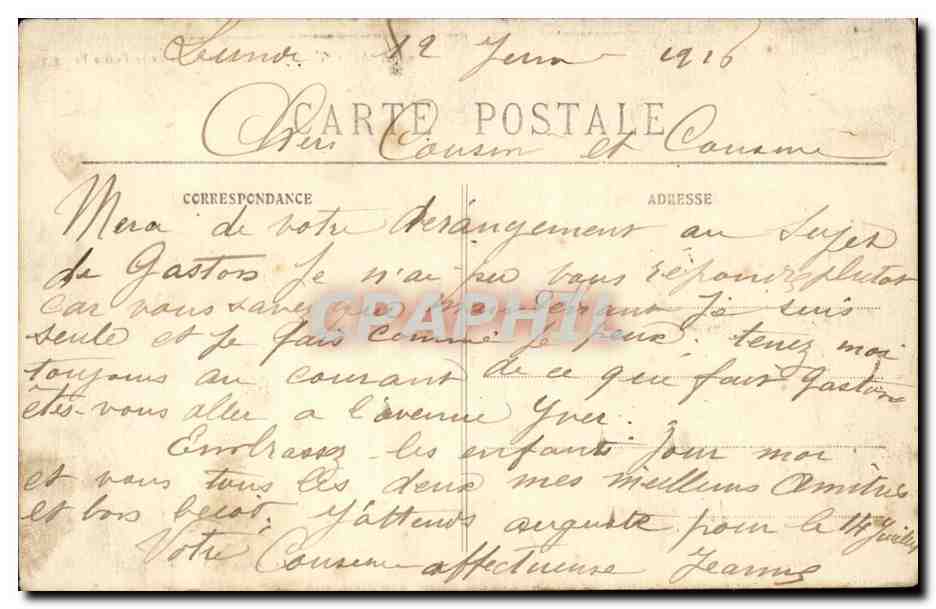 Lundi 12 Juin 1916
CARTE POSTALE
Chers Cousin et Cousine
CORRESPONDANCE
ADRESSE
Merci de votre dérangement au sujet
de Gaston Je n'ai pu vous répondre plutot
car vous savez que maintenant je suis
CARPHIL
seule et je fais comme je peux. tenez moi
toujours au courant de ce que fait Gaston
êtes-vous aller a l'avenue Yver.
Embrassez les enfants pour moi
et vous tous les deux mes meilleurs amitiés
et bons becot, J'attends auguste pour le 14 Juillet
Votre Cousine affectueuse Jeanne